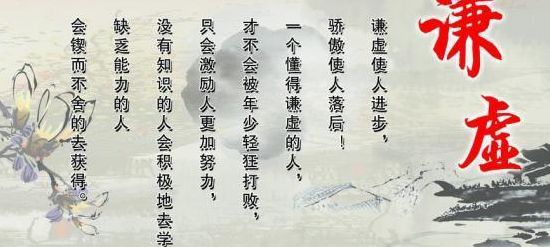 谦虚
谦虚使人进步，
骄傲使人落后！
一个懂得谦虚的人，
才不会被年少轻狂打败，
只会激励人更加努力，
没有知识的人会积极地去学
缺乏能力的人
会锲而不舍的去获得。